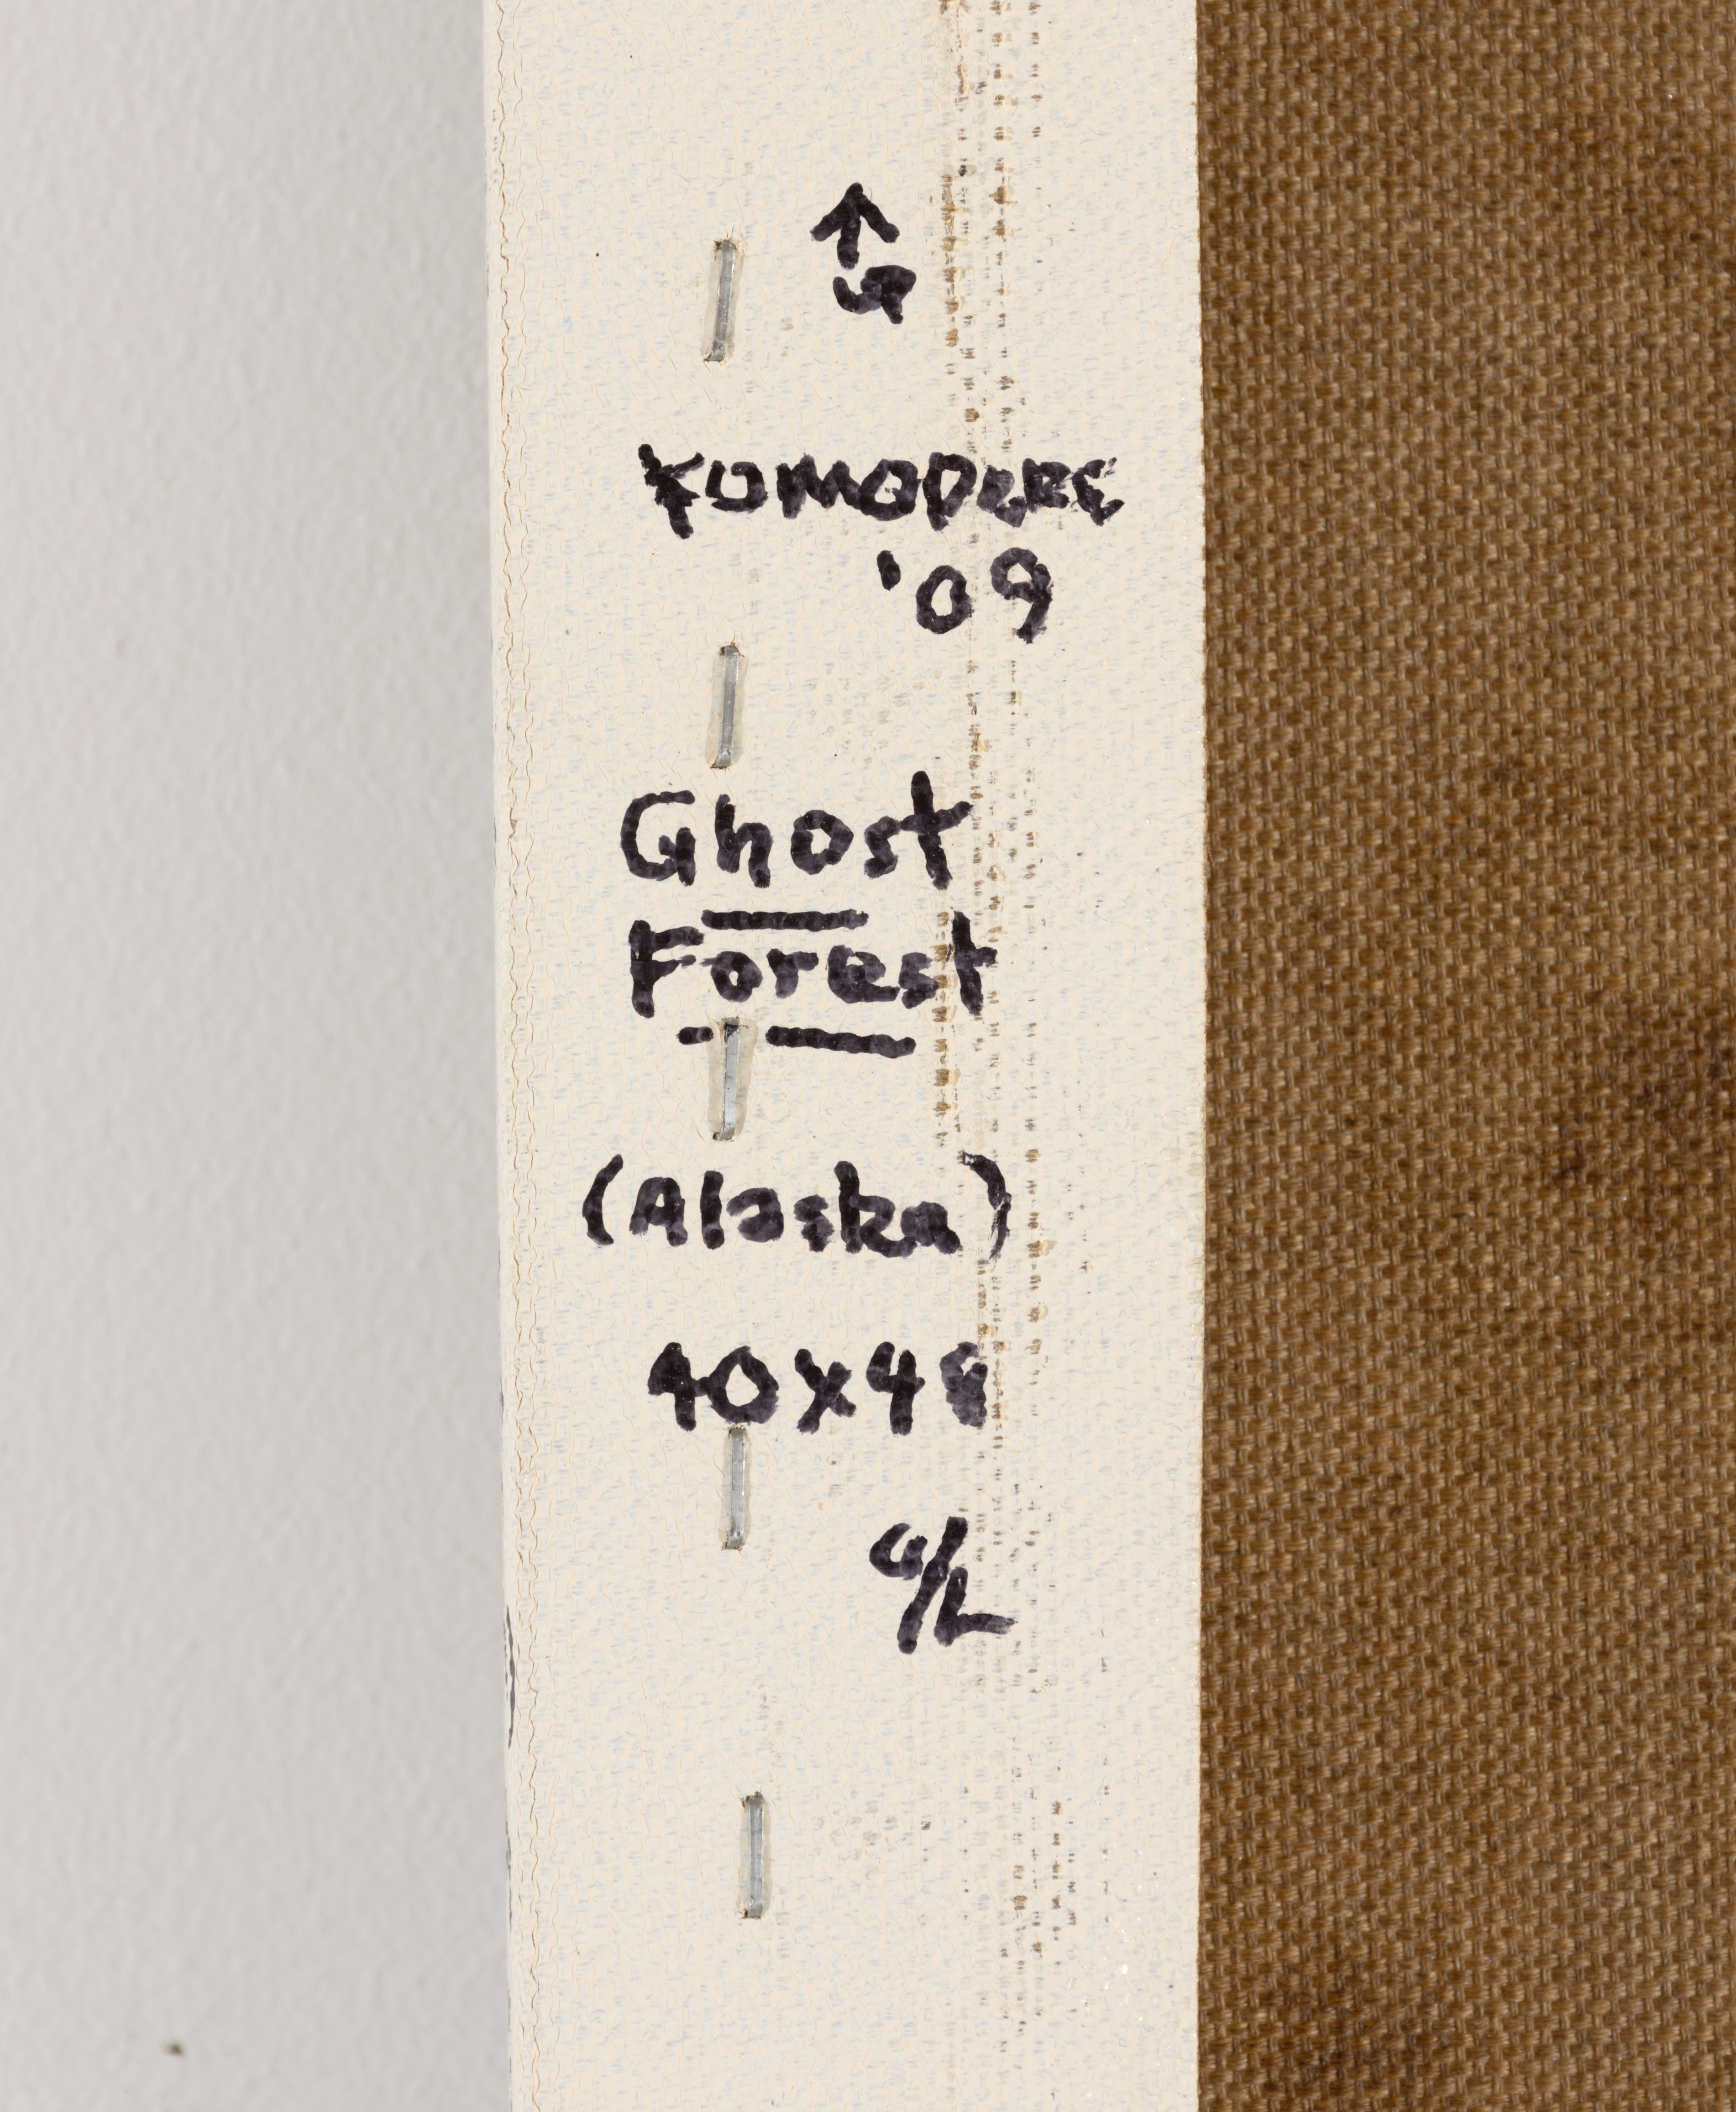 Komodore
'09
Ghost
Forest
(Alaska)
40x48
O/L